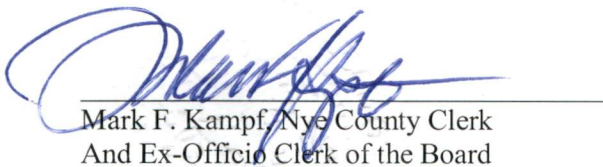 Mark F. Kampf, Nye County Clerk
And Ex-Officio Clerk of the Board